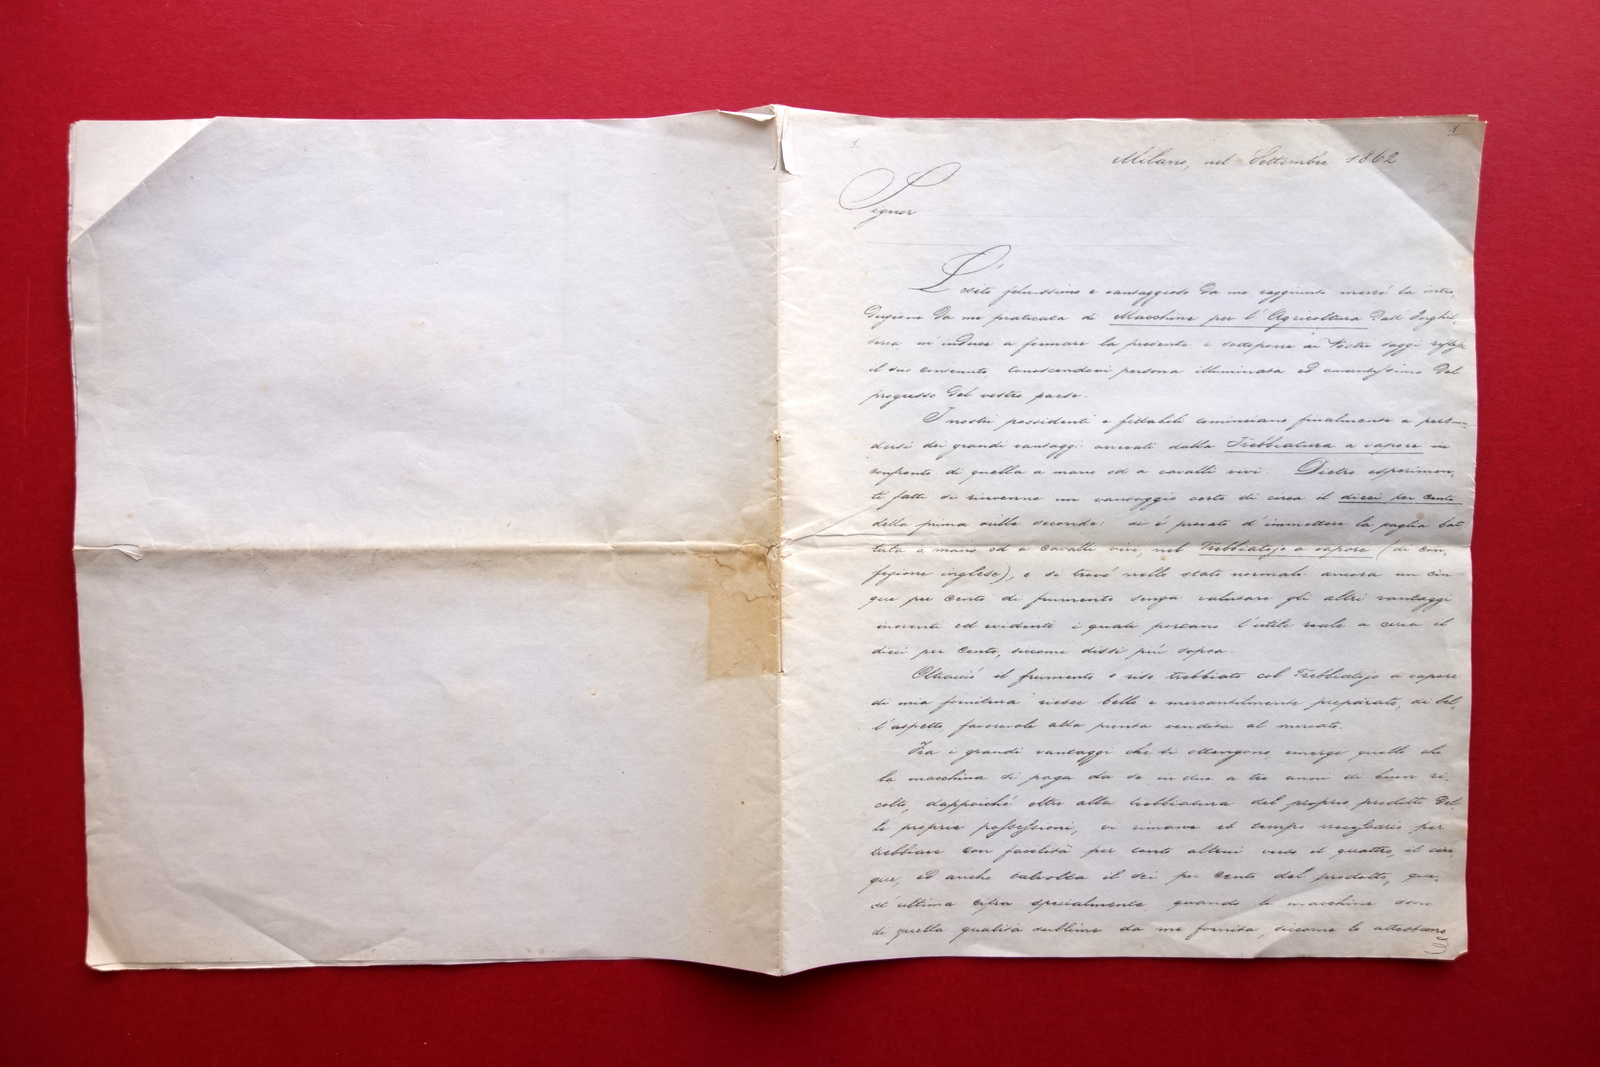 1
1
Milano, nel Settembre 1862
Signor
L'esito felicissimo e vantaggioso da me raggiunto mercé la intro,
duzione da me praticata di Macchine per l'Agricoltura dall'Inghil,
terra m'induce a formare la presente e sottoporre ai Vostri saggi riflessi
il suo contenuto, conoscendovi persona illuminata ed amantissima del
progresso del vostro paese.
I nostri possidenti e fittabili cominciano finalmente a persua,
dersi dei grandi vantaggi arrecati dalla Trebbiatura a vapore in
confronto di quella a mano od a cavalli vivi. Dietro esperimen,
ti fatti si rinvenne un vantaggio certo di circa il dieci per cento
della prima sulle seconde: si è provato d'immettere la paglia bat,
tuta a mano od a cavalli vivi, nel Trebbiatojo a vapore (di con,
fezione inglese), e si trovò nello stato normale ancora un cin
que per cento di frumento senza valutare gli altri vantaggi
inerenti ed evidenti i quali portano l'utile reale a circa il
dieci per cento, siccome dissi più sopra.
Oltracciò il frumento o riso trebbiato col Trebbiatojo a vapore
di mia fornitura riesce bello e mercantilmente preparato, di bel,
l'aspetto favorevole alla pronta vendita al mercato.
Fra i grandi vantaggi che si ottengono, emerge quello che
la macchina si paga da se in due a tre anni di buon ri,
colto, dappoiché oltre alla trebbiatura del proprio prodotto del,
le proprie possessioni, vi rimane il tempo necessario per
trebbiare con facilità per conto altrui verso il quattro, il cin,
que, ed anche talvolta il sei per cento del prodotto, que,
st'ultima cifra specialmente quando le macchine sono
di quella qualità sublime da me fornita, siccome lo attestano